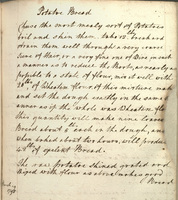 Potatoe Bread
Chuse the most mealy sort of Potatoe
boil and skin them. take 12lb break and
strain them well through a very coarse
Sieve of Hair, or a very fine one of Wire, in such
a manner as to reduce the Roots, as nearly as
possible to a state of flour, mix it well with
20lb of Wheaten flour. of this mixture make
and set the dough exactly on the same
manner as if the whole was Wheaten flour
this quantity will make nine loaves
Bread about 5lb each in the dough, and
when baked about two hours, will produce
42lb of excellent Bread.
The raw Potatoe skined grated and
Mixed with flour as above, makes good
Bread